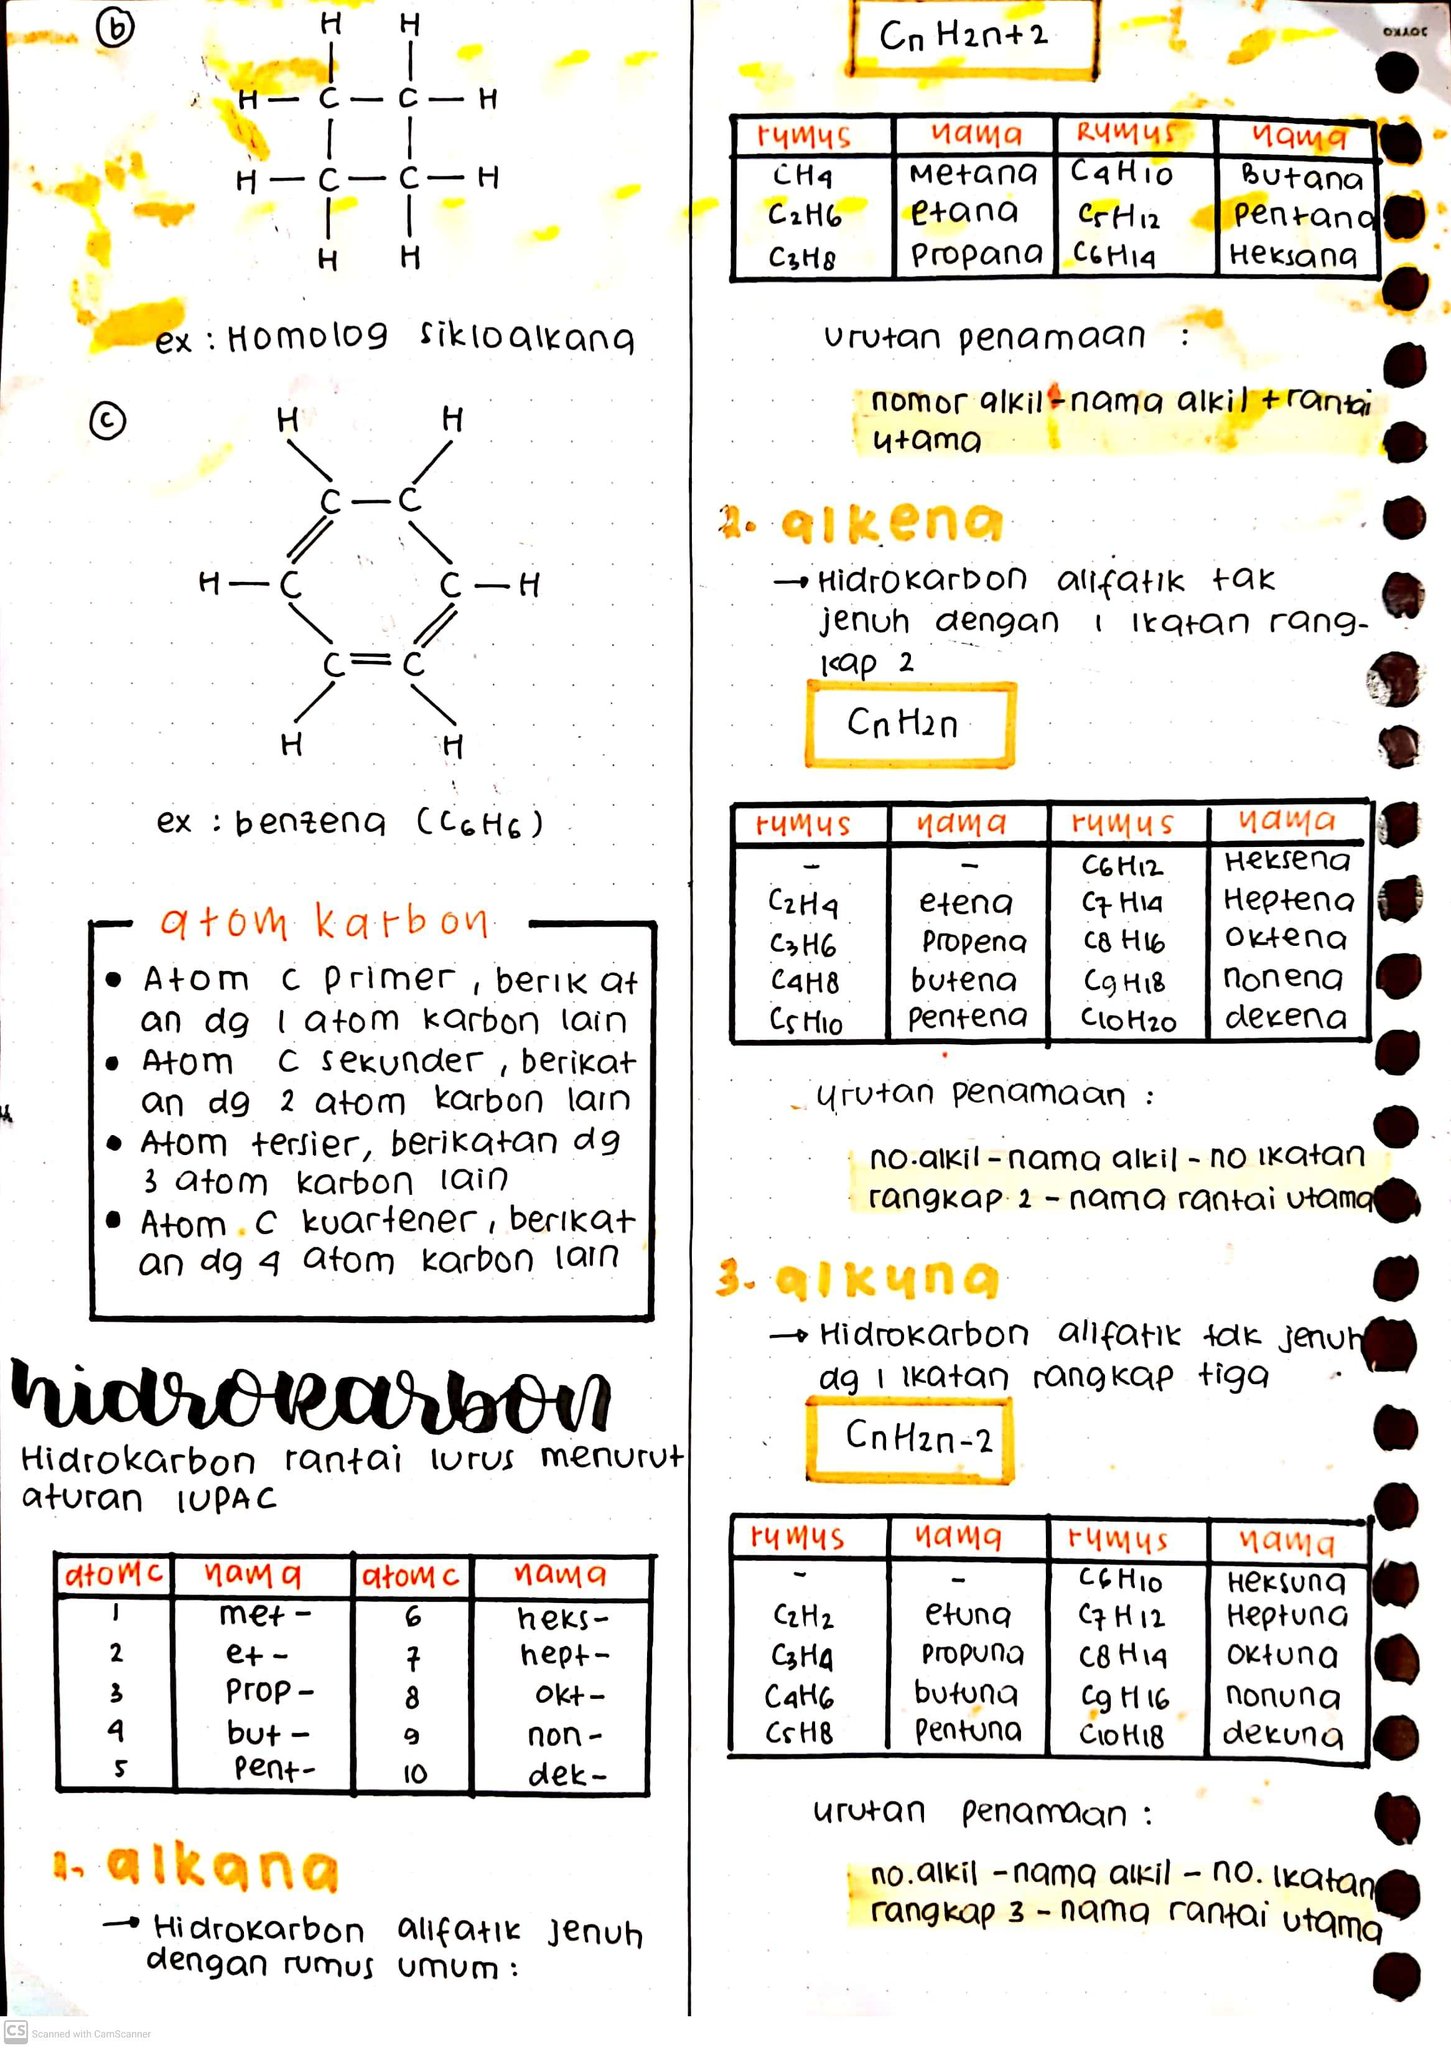 b
H H
H — C — C — H
H — C — C — H
H H
ex : Homolog sikloalkana
c
H H
C — C
H — C C — H
C = C
H H
ex : benzena (C6H6)
atom karbon
• Atom C primer, berikat
an dg 1 atom karbon lain
• Atom C sekunder, berikat
an dg 2 atom karbon lain
• Atom tersier, berikatan dg
3 atom karbon lain
• Atom C kuartener, berikat
an dg 4 atom karbon lain
hidrokarbon
Hidrokarbon rantai lurus menurut
aturan IUPAC
atom c nama atom c nama
1 met- 6 heks-
2 et- 7 hept-
3 prop- 8 okt-
4 but- 9 non-
5 pent- 10 dek-
1. alkana
→ Hidrokarbon alifatik jenuh
dengan rumus umum :
CnH2n+2
rumus nama Rumus nama
CH4 Metana C4H10 Butana
C2H6 etana C5H12 Pentana
C3H8 Propana C6H14 Heksana
urutan penamaan :
nomor alkil-nama alkil + rantai
utama
2. alkena
→ Hidrokarbon alifatik tak
jenuh dengan 1 ikatan rang-
kap 2
CnH2n
rumus nama rumus nama
- - C6H12 Heksena
C2H4 etena C7H14 Heptena
C3H6 Propena C8H16 Oktena
C4H8 butena C9H18 nonena
C5H10 pentena C10H20 dekena
urutan penamaan :
no.alkil - nama alkil - no ikatan
rangkap 2 - nama rantai utama
3. alkuna
→ Hidrokarbon alifatik tak jenuh
dg 1 ikatan rangkap tiga
CnH2n-2
rumus nama rumus nama
- - C6H10 Heksuna
C2H2 etuna C7H12 Heptuna
C3H4 propuna C8H14 Oktuna
C4H6 butuna C9H16 nonuna
C5H8 Pentuna C10H18 dekuna
urutan penamaan :
no.alkil - nama alkil - no. ikatan
rangkap 3 - nama rantai utama
CS Scanned with CamScanner